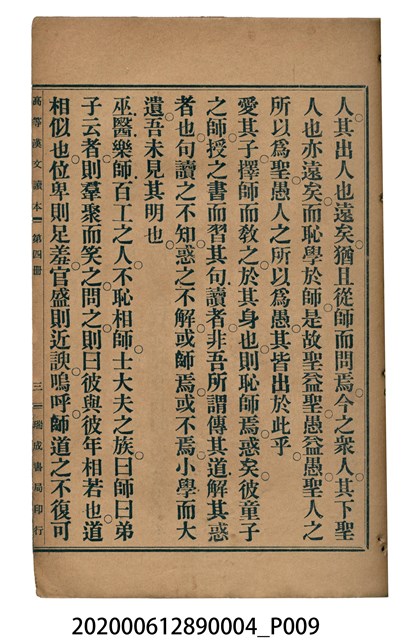 人其出人也遠矣猶且從師而問焉今之衆人其下聖
人也亦遠矣而恥學於師是故聖益聖愚益愚聖人之
所以爲聖愚人之所以爲愚其皆出於此乎
愛其子擇師而敎之於其身也則恥師焉惑矣彼童子
之師授之書而習其句讀者非吾所謂傳其道解其惑
者也句讀之不知惑之不解或師焉或不焉小學而大
遺吾未見其明也
巫醫樂師百工之人不恥相師士大夫之族曰師曰弟
子云者則羣聚而笑之問之則曰彼與彼年相若也道
相似也位卑則足羞官盛則近諛嗚呼師道之不復可
高等漢文讀本 第四冊 三 瑞成書局印行
202000612890004_P009